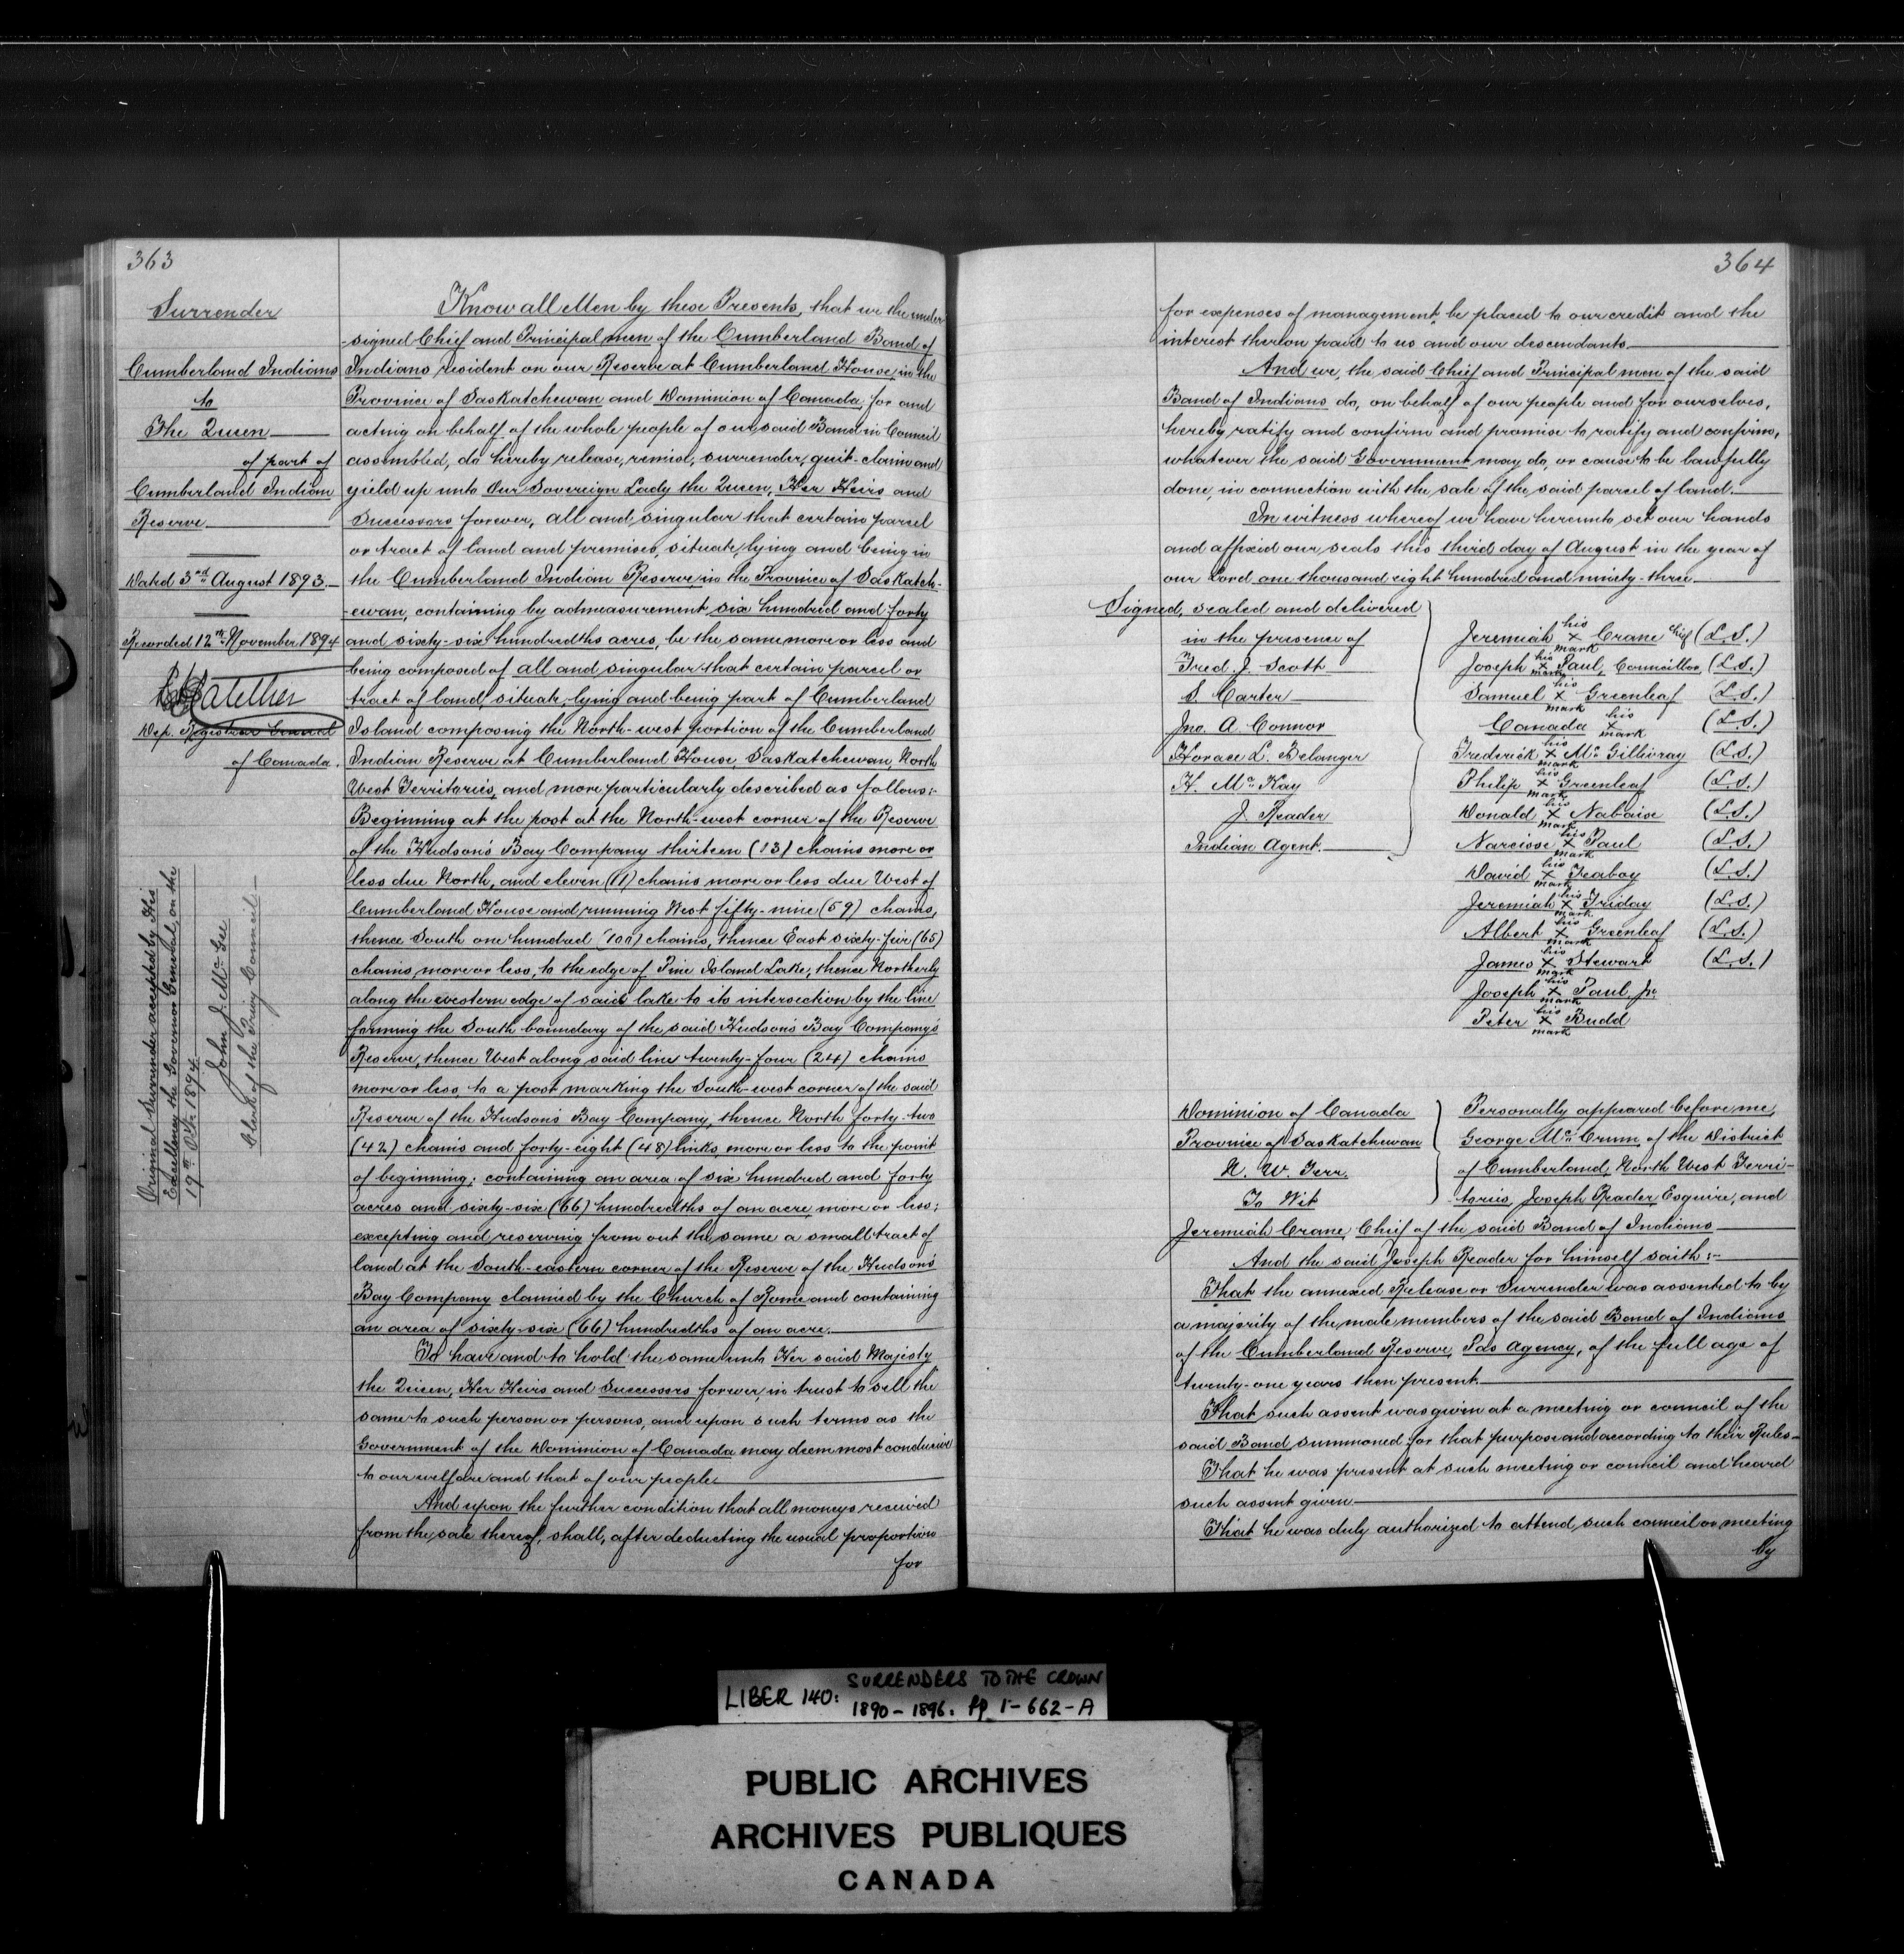 363
Surrender
Cumberland Indians
to
The Queen
of part of
Cumberland Indian
Reserve
Dated 3rd August 1893.
Recorded 12th November 1894
Dep. Registrar General
of Canada.
Original Surrender accepted by His
Excellency the Governor General, on the
19th Oct. 1894
John J. McGee
Clerk of the Privy Council
Know all Men by these Presents, that we the under
-signed Chief and Principal men of the Cumberland Band of
Indians resident on our Reserve at Cumberland House, in the
Province of Saskatchewan and Dominion of Canada, for and
acting on behalf of the whole people of our said Band in Council
assembled, do hereby release, remise, surrender, quit-claim and
yield up unto Our Sovereign Lady the Queen, Her Heirs and
Successors forever, all and singular that certain parcel
or tract of land and premises, situate, lying and being in
the Cumberland Indian Reserve, in the Province of Saskatch-
-ewan, containing by admeasurement six hundred and forty
and sixty-six hundredths acres, be the same more or less and
being composed of all and singular that certain parcel or
tract of land, situate, lying and being part of Cumberland
Island composing the North-west portion of the Cumberland
Indian Reserve at Cumberland House, Saskatchewan, North
West Territories, and more particularly described as follows:-
Beginning at the post at the North-west corner of the Reserve
of the Hudson's Bay Company thirteen (13) chains more or
less due North, and eleven (11) chains more or less due West of
Cumberland House and running West fifty-nine (59) chains,
thence South one hundred (100) chains, thence East sixty-five (65)
chains, more or less, to the edge of Pine Island Lake, thence Northerly
along the western edge of said lake to its intersection by the line
forming the South boundary of the said Hudson's Bay Company's
Reserve, thence West along said line twenty-four (24) chains
more or less, to a post marking the South-west corner of the said
Reserve of the Hudson's Bay Company, thence North forty-two
(42) chains and forty-eight (48) links, more or less to the point
of beginning; containing an area of six hundred and forty
acres and sixty-six (66) hundredths of an acre, more or less;
excepting and reserving from out the same a small tract of
land at the South-eastern corner of the Reserve of the Hudson's
Bay Company claimed by the Church of Rome and containing
an area of sixty-six (66) hundredths of an acre.
To have and to hold the same unto Her said Majesty
the Queen, Her Heirs and Successors forever, in trust to sell the
same to such person or persons, and upon such terms as the
Government of the Dominion of Canada may deem most conducive
to our welfare and that of our people
And upon the further condition that all moneys received
from the sale thereof, shall, after deducting the usual proportion
for
364
for expenses of management, be placed to our credit and the
interest thereon paid to us and our descendants
And we, the said Chief and Principal men of the said
Band of Indians do, on behalf of our people and for ourselves,
hereby ratify and confirm and promise to ratify and confirm,
whatever the said Government may do, or cause to be lawfully
done, in connection with the sale of the said parcel of land.
In witness whereof we have hereunto set our hands
and affixed our seals this third day of August in the year of
our Lord one thousand eight hundred and ninety-three
Signed, sealed and delivered
in the presence of
Fred. J. Scott
S. Carter
Jno. A. Connor
Horace L. Belanger
H. McKay
J. Reader
Indian Agent.
Jeremiah his x mark Crane Chief (L.S.)
Joseph his x mark Paul, Councillor, (L.S.)
Samuel his x mark Greenleaf (L.S.)
Canada his x mark (L.S.)
Frederick his x mark McGillivray (L.S.)
Philip his x mark Greenleaf (L.S.)
Donald his x mark Nabaise (L.S.)
Narcisse his x mark Paul (L.S.)
David his x mark Teaboy (L.S.)
Jeremiah his x mark Friday (L.S.)
Albert his x mark Greenleaf (L.S.)
James his x mark Stewart (L.S.)
Joseph his x mark Paul, Jr.
Peter his x mark Budd
Dominion of Canada
Province of Saskatchewan
N. W. Terr.
To Wit
Personally appeared before me,
George McCrum, of the District
of Cumberland, North West Terri-
-tories, Joseph Reader, Esquire, and
Jeremiah Crane, Chief of the said Band of Indians
And the said Joseph Reader for himself saith:-
That the annexed Release or Surrender was assented to by
a majority of the male members of the said Band of Indians
of the Cumberland Reserve, Pas Agency, of the full age of
twenty-one years then present.
That such assent was given at a meeting or council of the
said Band summoned for that purpose and according to their Rules
That he was present at such meeting or council and heard
such assent given
That he was duly authorized to attend such council or meeting
by
LIBER 140: SURRENDERS TO THE CROWN
1890-1896. pp 1-662-A
PUBLIC ARCHIVES
ARCHIVES PUBLIQUES
CANADA